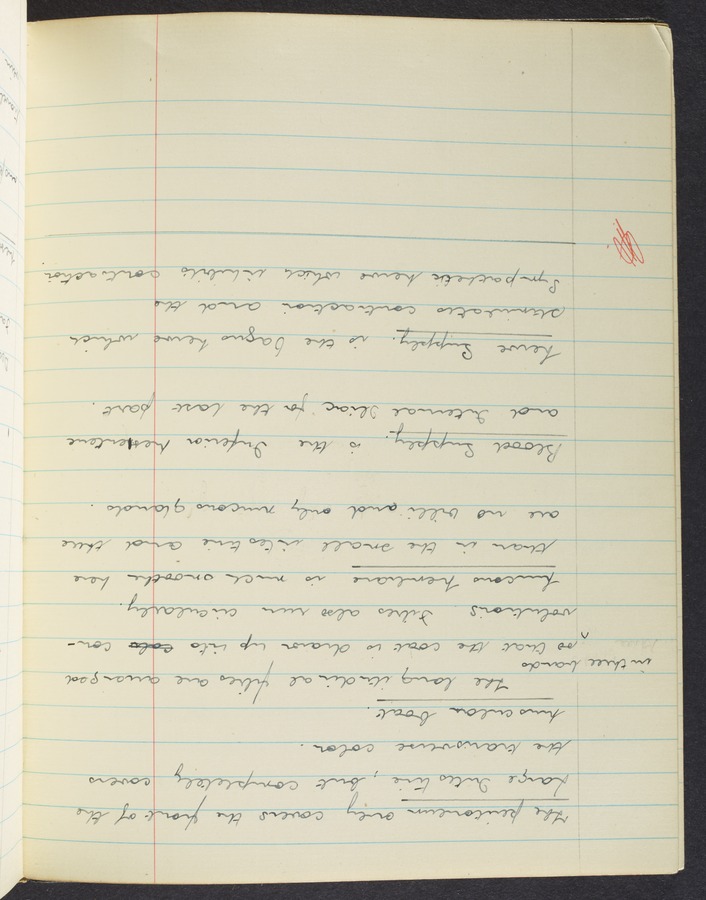 The peritoneum only covers the front of the
Large Intestine, but completely covers
the transverse colon.
Muscular Coat.
The longitudinal fibres are arranged
in three bands
so that the coat is drawn up into con-
volutions. Fibres also run circularly.
Mucous Membrane is much smoother here
than in the small intestine and there
are no villi and only mucous glands.
Blood Supply. is the Inferior Mesenteric
and Internal Iliac for the last part.
Nerve Supply. is the Vagus nerve which
stimulates contraction and the
Sympathetic nerve which inhibits contraction